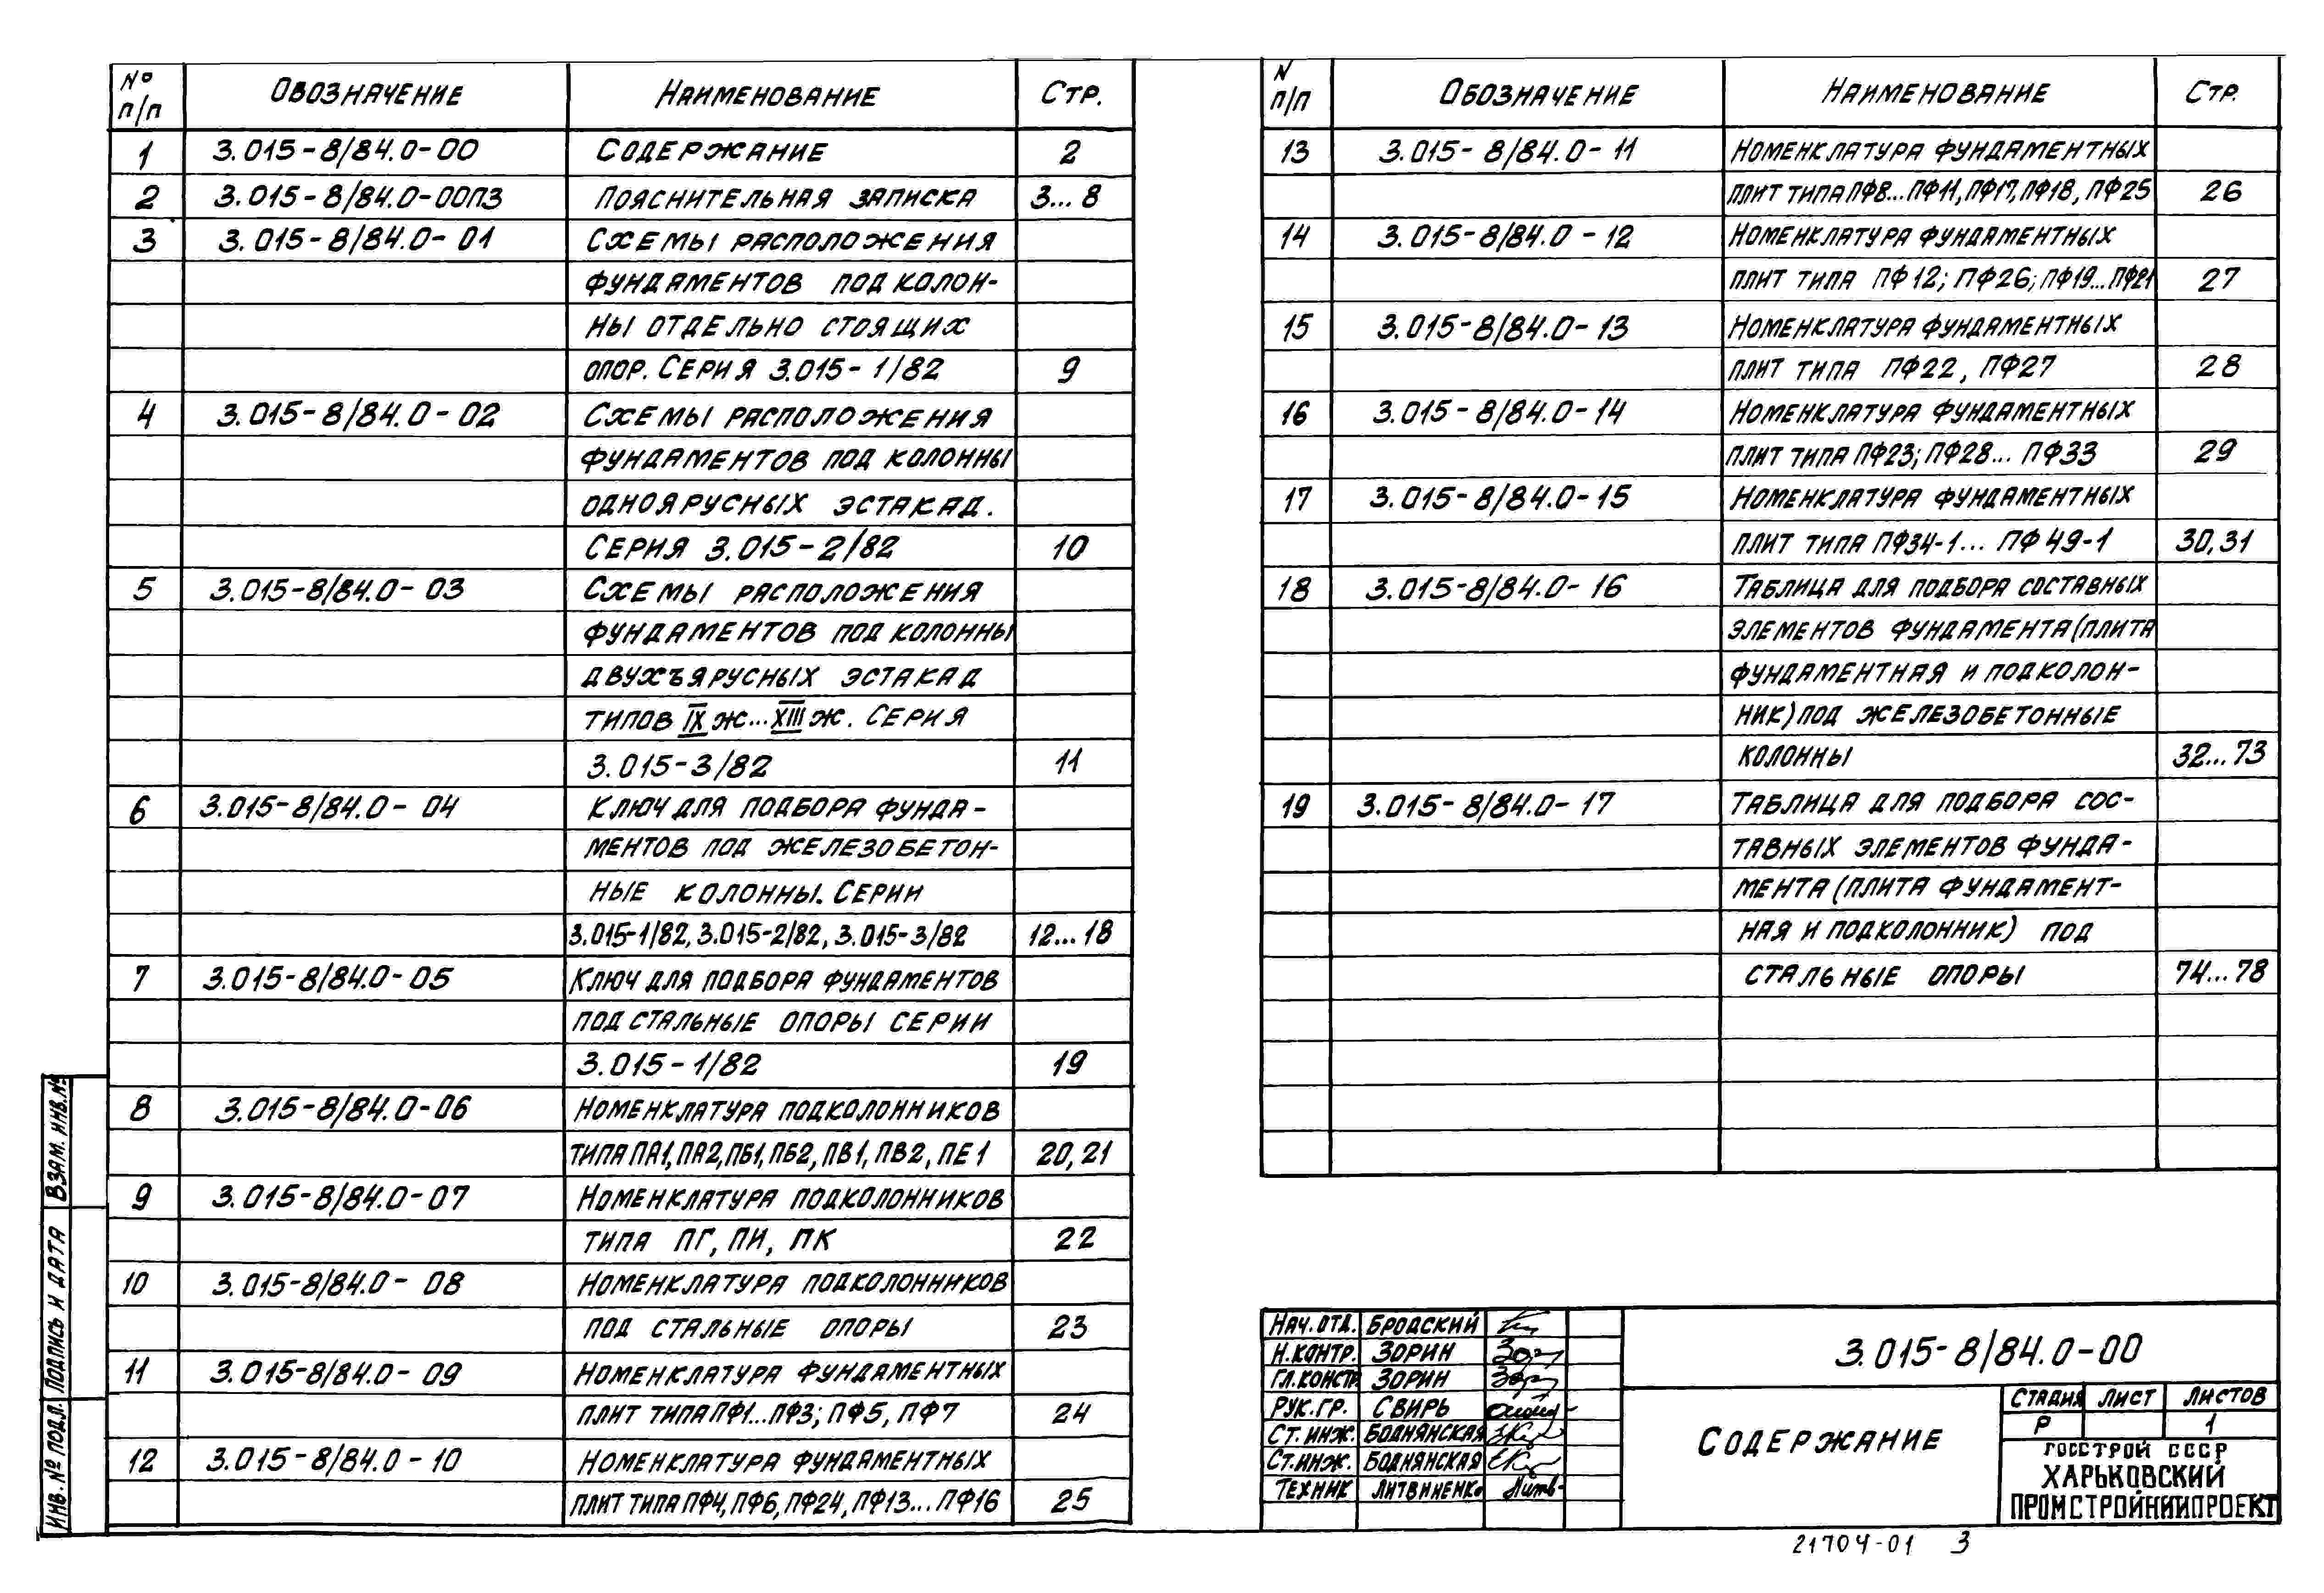 № п/п Обозначение Наименование Стр.
1 3.015-8/84.0-00 Содержание 2
2 3.015-8/84.0-00ПЗ Пояснительная записка 3...8
3 3.015-8/84.0-01 Схемы расположения
фундаментов под колон-
ны отдельно стоящих
опор. Серия 3.015-1/82 9
4 3.015-8/84.0-02 Схемы расположения
фундаментов под колонны
одноярусных эстакад.
Серия 3.015-2/82 10
5 3.015-8/84.0-03 Схемы расположения
фундаментов под колонны
двухъярусных эстакад
типов IXж...XIIIж. Серия
3.015-3/82 11
6 3.015-8/84.0-04 Ключ для подбора фунда-
ментов под железобетон-
ные колонны. Серии
3.015-1/82, 3.015-2/82, 3.015-3/82 12...18
7 3.015-8/84.0-05 Ключ для подбора фундаментов
под стальные опоры серии
3.015-1/82 19
8 3.015-8/84.0-06 Номенклатура подколонников
типа ПА1, ПА2, ПБ1, ПБ2, ПВ1, ПВ2, ПЕ1 20, 21
9 3.015-8/84.0-07 Номенклатура подколонников
типа ПГ, ПИ, ПК 22
10 3.015-8/84.0-08 Номенклатура подколонников
под стальные опоры 23
11 3.015-8/84.0-09 Номенклатура фундаментных
плит типа ПФ1...ПФ3; ПФ5, ПФ7 24
12 3.015-8/84.0-10 Номенклатура фундаментных
плит типа ПФ4, ПФ6, ПФ24, ПФ13...ПФ16 25
N п/п Обозначение Наименование Стр.
13 3.015-8/84.0-11 Номенклатура фундаментных
плит типа ПФ8...ПФ11, ПФ17, ПФ18, ПФ25 26
14 3.015-8/84.0-12 Номенклатура фундаментных
плит типа ПФ12; ПФ26; ПФ19...ПФ21 27
15 3.015-8/84.0-13 Номенклатура фундаментных
плит типа ПФ22, ПФ27 28
16 3.015-8/84.0-14 Номенклатура фундаментных
плит типа ПФ23; ПФ28... ПФ33 29
17 3.015-8/84.0-15 Номенклатура фундаментных
плит типа ПФ34-1... ПФ49-1 30, 31
18 3.015-8/84.0-16 Таблица для подбора составных
элементов фундамента (плита
фундаментная и подколон-
ник) под железобетонные
колонны 32...73
19 3.015-8/84.0-17 Таблица для подбора сос-
тавных элементов фунда-
мента (плита фундамент-
ная и подколонник) под
стальные опоры 74...78
Взам. инв.№
Подпись и дата
Инв.№ подл.
Нач.отд. Бродский
Н.контр. Зорин
Гл.констр Зорин
Рук.гр. Свирь
Ст.инж. Боднянская
Ст.инж. Боднянская
Техник Литвиненко
3.015-8/84.0-00
Содержание
Стадия Лист Листов
Р 1
Госстрой СССР
Харьковский
Промстройниипроект
21704-01 3